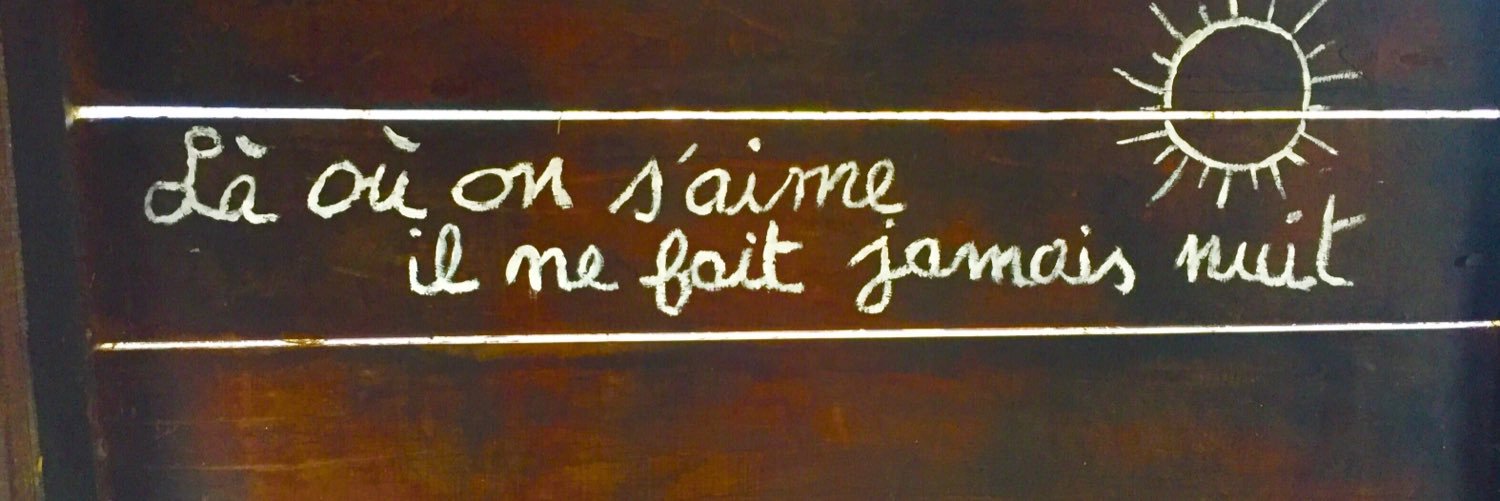 Là où on s'aime
il ne fait jamais nuit